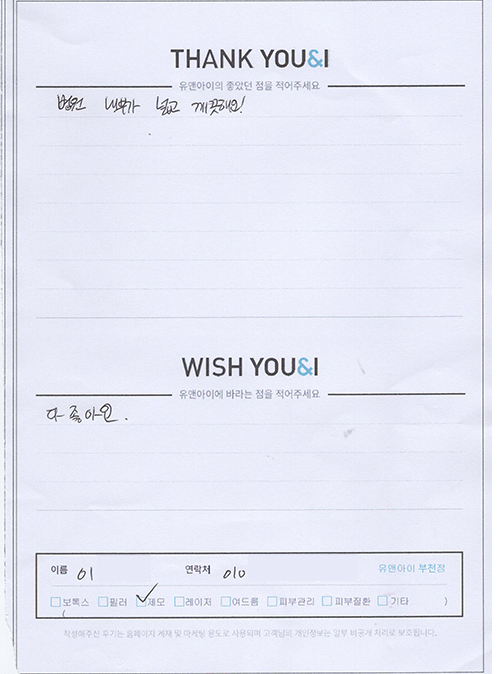 THANK YOU&I
유앤아이의 좋았던 점을 적어주세요
병원 내부가 넓고 깨끗해요!
WISH YOU&I
유앤아이에 바라는 점을 적어주세요
다 좋아요.
이름 이 연락처 010 유앤아이 부천점
보톡스 필러 제모 레이저 여드름 피부관리 피부질환 기타 )
(
작성해주신 후기는 홈페이지 게재 및 마케팅 용도로 사용되며 고객님의 개인정보는 일부 비공개 처리로 보호됩니다.